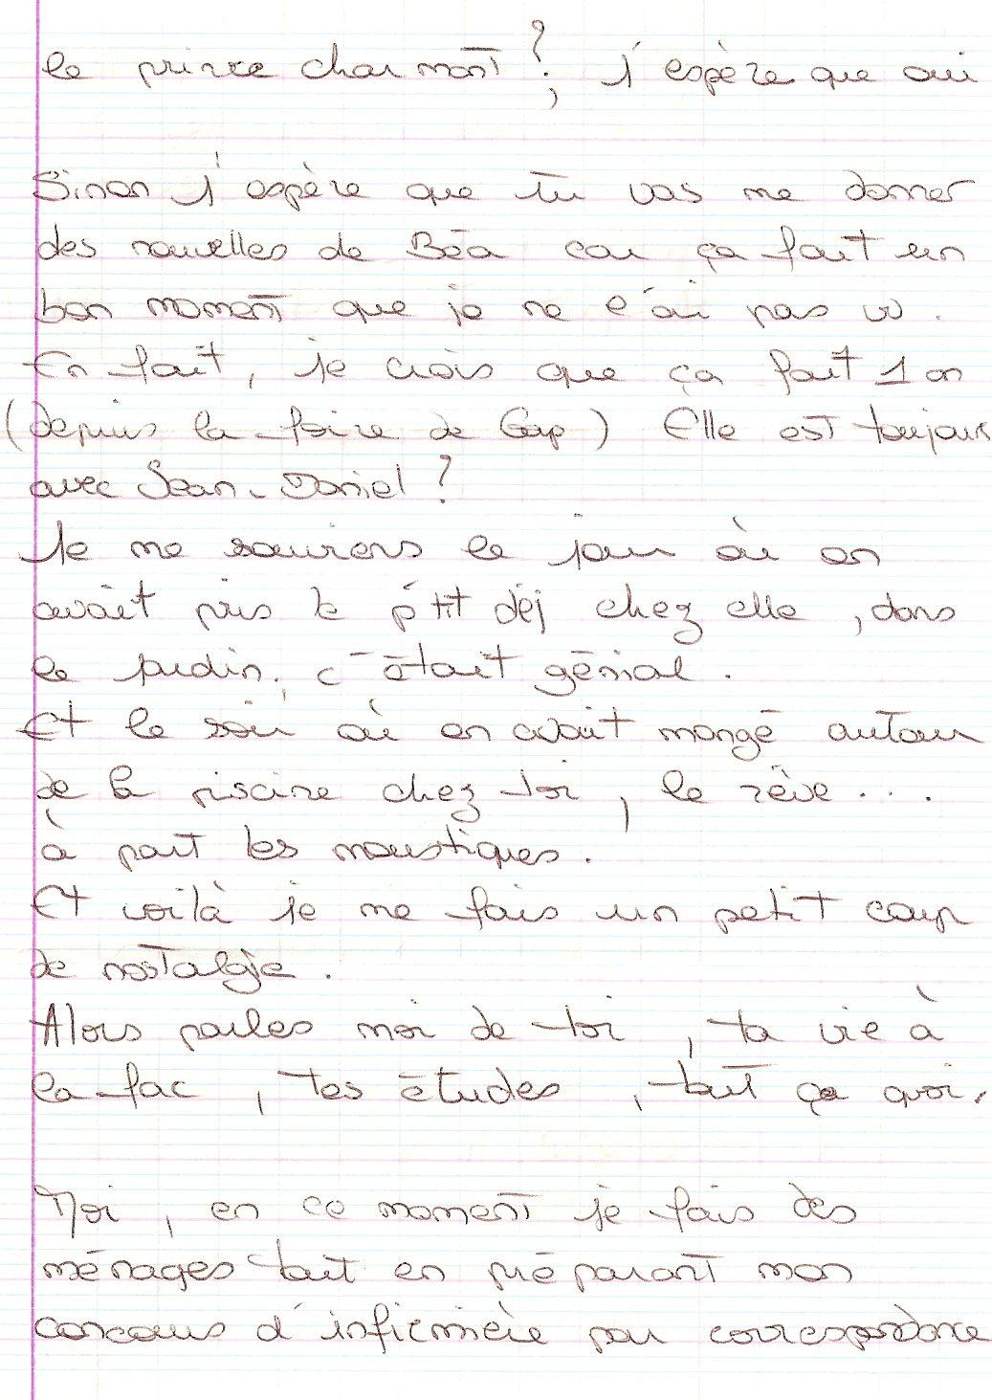 le prince charmant ?, j'espère que oui
Sinon j'espère que tu vas me donner
des nouvelles de Béa car ça fait un
bon moment que je ne l'ai pas vu.
En fait, je crois que ça fait 1 an
(depuis la foire de Gap) Elle est toujours
avec Jean-Daniel ?
Je me souviens le jour où on
avait pris le p'tit déj chez elle, dans
le jardin, c'était génial.
Et le soir où on avait mangé autour
de la piscine chez toi, le rêve...
à part les moustiques.
Et voilà je me fais un petit coup
de nostalgie.
Alors parles moi de toi, ta vie à
la fac, tes études, tout ça quoi.
Moi, en ce moment je fais des
ménages tout en préparant mon
concours d'infirmière par correspondance